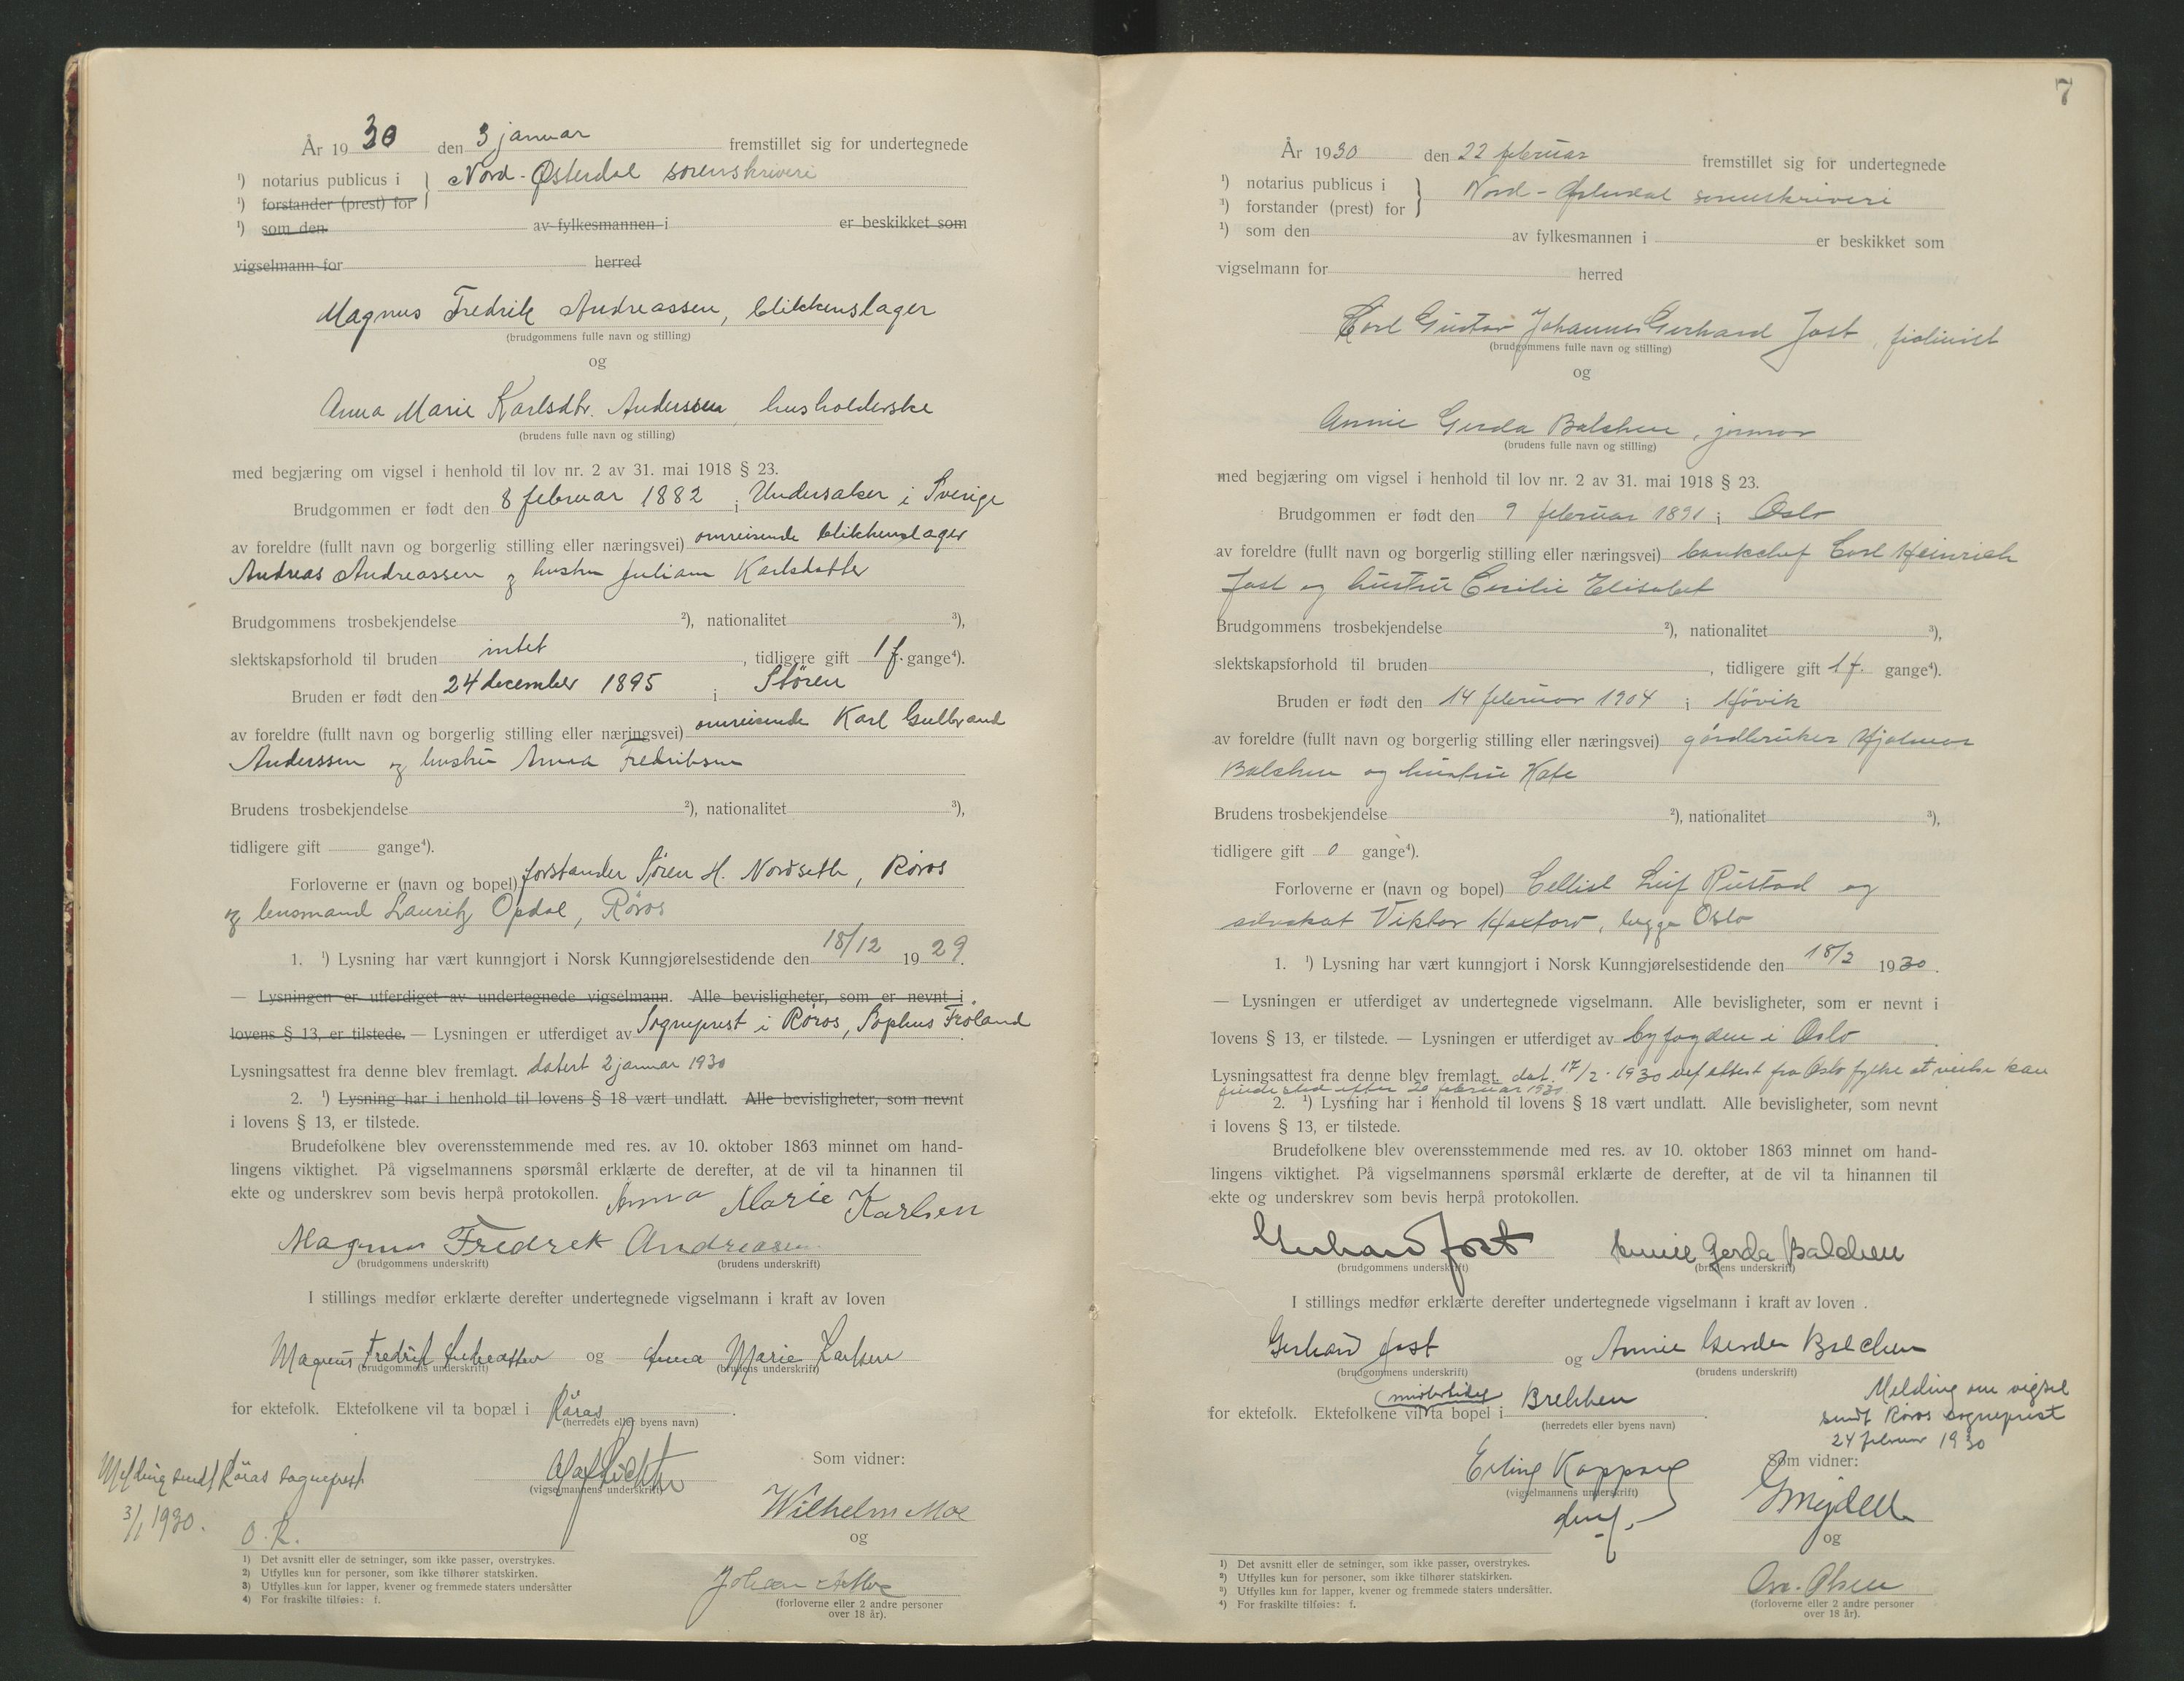 År 1930 den 3 januar fremstillet sig for undertegnede
¹) notarius publicus i } Nord-Østerdal sorenskriveri
¹) forstander (prest) for
¹) som den av fylkesmannen i er beskikket som
vigselmann for herred
Magnus Fredrik Andreassen, blikkenslager
(brudgommens fulle navn og stilling)
og
Anna Marie Karlsdtr. Anderssen, husholderske
(brudens fulle navn og stilling)
med begjæring om vigsel i henhold til lov nr. 2 av 31. mai 1918 § 23.
Brudgommen er født den 8 februar 1882 i Undersaker i Sverige
av foreldre (fullt navn og borgerlig stilling eller næringsvei) omreisende blikkenslager
Andreas Andreassen og hustru Juliane Karlsdatter
Brudgommens trosbekjendelse ²), nationalitet ³),
slektskapsforhold til bruden intet, tidligere gift 1 f. gange⁴).
Bruden er født den 24 december 1895 i Støren
av foreldre (fullt navn og borgerlig stilling eller næringsvei) omreisende Karl Gulbrand
Anderssen og hustru Anna Fredriksen
Brudens trosbekjendelse ²), nationalitet ³),
tidligere gift gange⁴).
Forloverne er (navn og bopel) forstander Søren H. Nordseth, Røros
og lensmand Lauritz Opdal, Røros
1. ¹) Lysning har vært kunngjort i Norsk Kunngjørelsestidende den 18/12 1929.
— Lysningen er utferdiget av undertegnede vigselmann. Alle bevisligheter, som er nevnt i
lovens § 13, er tilstede. — Lysningen er utferdiget av Sogneprest i Røros, Sophus Frøland
Lysningsattest fra denne blev fremlagt. datert 2 januar 1930
2. ¹) Lysning har i henhold til lovens § 18 vært undlatt. Alle bevisligheter, som nevnt
i lovens § 13, er tilstede.
Brudefolkene blev overensstemmende med res. av 10. oktober 1863 minnet om hand-
lingens viktighet. På vigselmannens spørsmål erklærte de derefter, at de vil ta hinannen til
ekte og underskrev som bevis herpå protokollen. Anna Marie Karlsen
Magnus Fredrek Andreasen
(brudgommens underskrift) (brudens underskrift)
I stillings medfør erklærte derefter undertegnede vigselmann i kraft av loven
Magnus Fredrik Andreassen og Anna Marie Karlsen
(brudgommens underskrift) (brudens underskrift)
for ektefolk. Ektefolkene vil ta bopæl i Röras
(herredets eller byens navn)
Som vidner:
Melding sendt Röras sogneprest
3/1 1930.
(vigselmannens underskrift)
Wilhelm Moe
og
O. R.
Johan
(forloverne eller 2 andre personer
over 18 år).
1) Det avsnitt eller de setninger, som ikke passer, overstrykes.
2) Utfylles kun for personer, som ikke tilhører statskirken.
3) Utfylles kun for lapper, kvener og fremmede staters undersåtter
4) For fraskilte tilføies: f.
7
År 1930 den 22 februar fremstillet sig for undertegnede
¹) notarius publicus i } Nord-Østerdal sorenskriveri
³) forstander (prest) for
¹) som den av fylkesmannen i er beskikket som
vigselmann for herred
Carl Gustav Johannes Gerhard Jost, fiolinist
(brudgommens fulle navn og stilling)
og
Annie Gerda Balchen,
(brudens fulle navn og stilling)
med begjæring om vigsel i henhold til lov nr. 2 av 31. mai 1918 § 23.
Brudgommen er født den 9 februar 1891 i Oslo
av foreldre (fullt navn og borgerlig stilling eller næringsvei) bankchef Carl Heinrich
Jost og hustru Cecilie Elisabet
Brudgommens trosbekjendelse ²), nationalitet ³),
slektskapsforhold til bruden, tidligere gift 1 f. gange⁴).
Bruden er født den 14 februar 1904 i Høvik
av foreldre (fullt navn og borgerlig stilling eller næringsvei) gårdbruker Hjalmar
Balchen og hustru Kate
Brudens trosbekjendelse ²), nationalitet ³),
tidligere gift 0 gange⁴).
Forloverne er (navn og bopel) Cellist Leif Rustad og
advokat Viktor, begge Oslo
1. ¹) Lysning har vært kunngjort i Norsk Kunngjørelsestidende den 18/2 1930.
— Lysningen er utferdiget av undertegnede vigselmann. Alle bevisligheter, som er nevnt i
lovens § 13, er tilstede. — Lysningen er utferdiget av byfogden i Oslo
Lysningsattest fra denne blev fremlagt. dat. 17/2 - 1930 attest fra Oslo fylke at vielse kan
finde sted efter 20 februar 1930.
2. ¹) Lysning har i henhold til lovens § 18 vært undlatt. Alle bevisligheter, som nevnt
i lovens § 13, er tilstede.
Brudefolkene blev overensstemmende med res. av 10. oktober 1863 minnet om hand-
lingens viktighet. På vigselmannens spørsmål erklærte de derefter, at de vil ta hinannen til
ekte og underskrev som bevis herpå protokollen.
Gerhard Jost Annie Gerda Balchen
(brudgommens underskrift) (brudens underskrift)
I stillings medfør erklærte derefter undertegnede vigselmann i kraft av loven
Gerhard Jost og Annie Gerda Balchen
(brudgommens underskrift) (brudens underskrift)
(midlertidig)
for ektefolk. Ektefolkene vil ta bopel i Brekken
(herredets eller byens navn)
Melding om vigsel
sendt Røros sogneprest
24 februar 1930
Som vidner:
Erling Kopperg
(vigselmannens underskrift)
og
Olsen
(forloverne eller 2 andre personer
over 18 år).
1) Det avsnitt eller de setninger, som ikke passer, overstrykes.
2) Utfylles kun for personer, som ikke tilhører statskirken.
3) Utfylles kun for lapper, kvener og fremmede staters undersåtter.
4) For fraskilte tilføies: f.